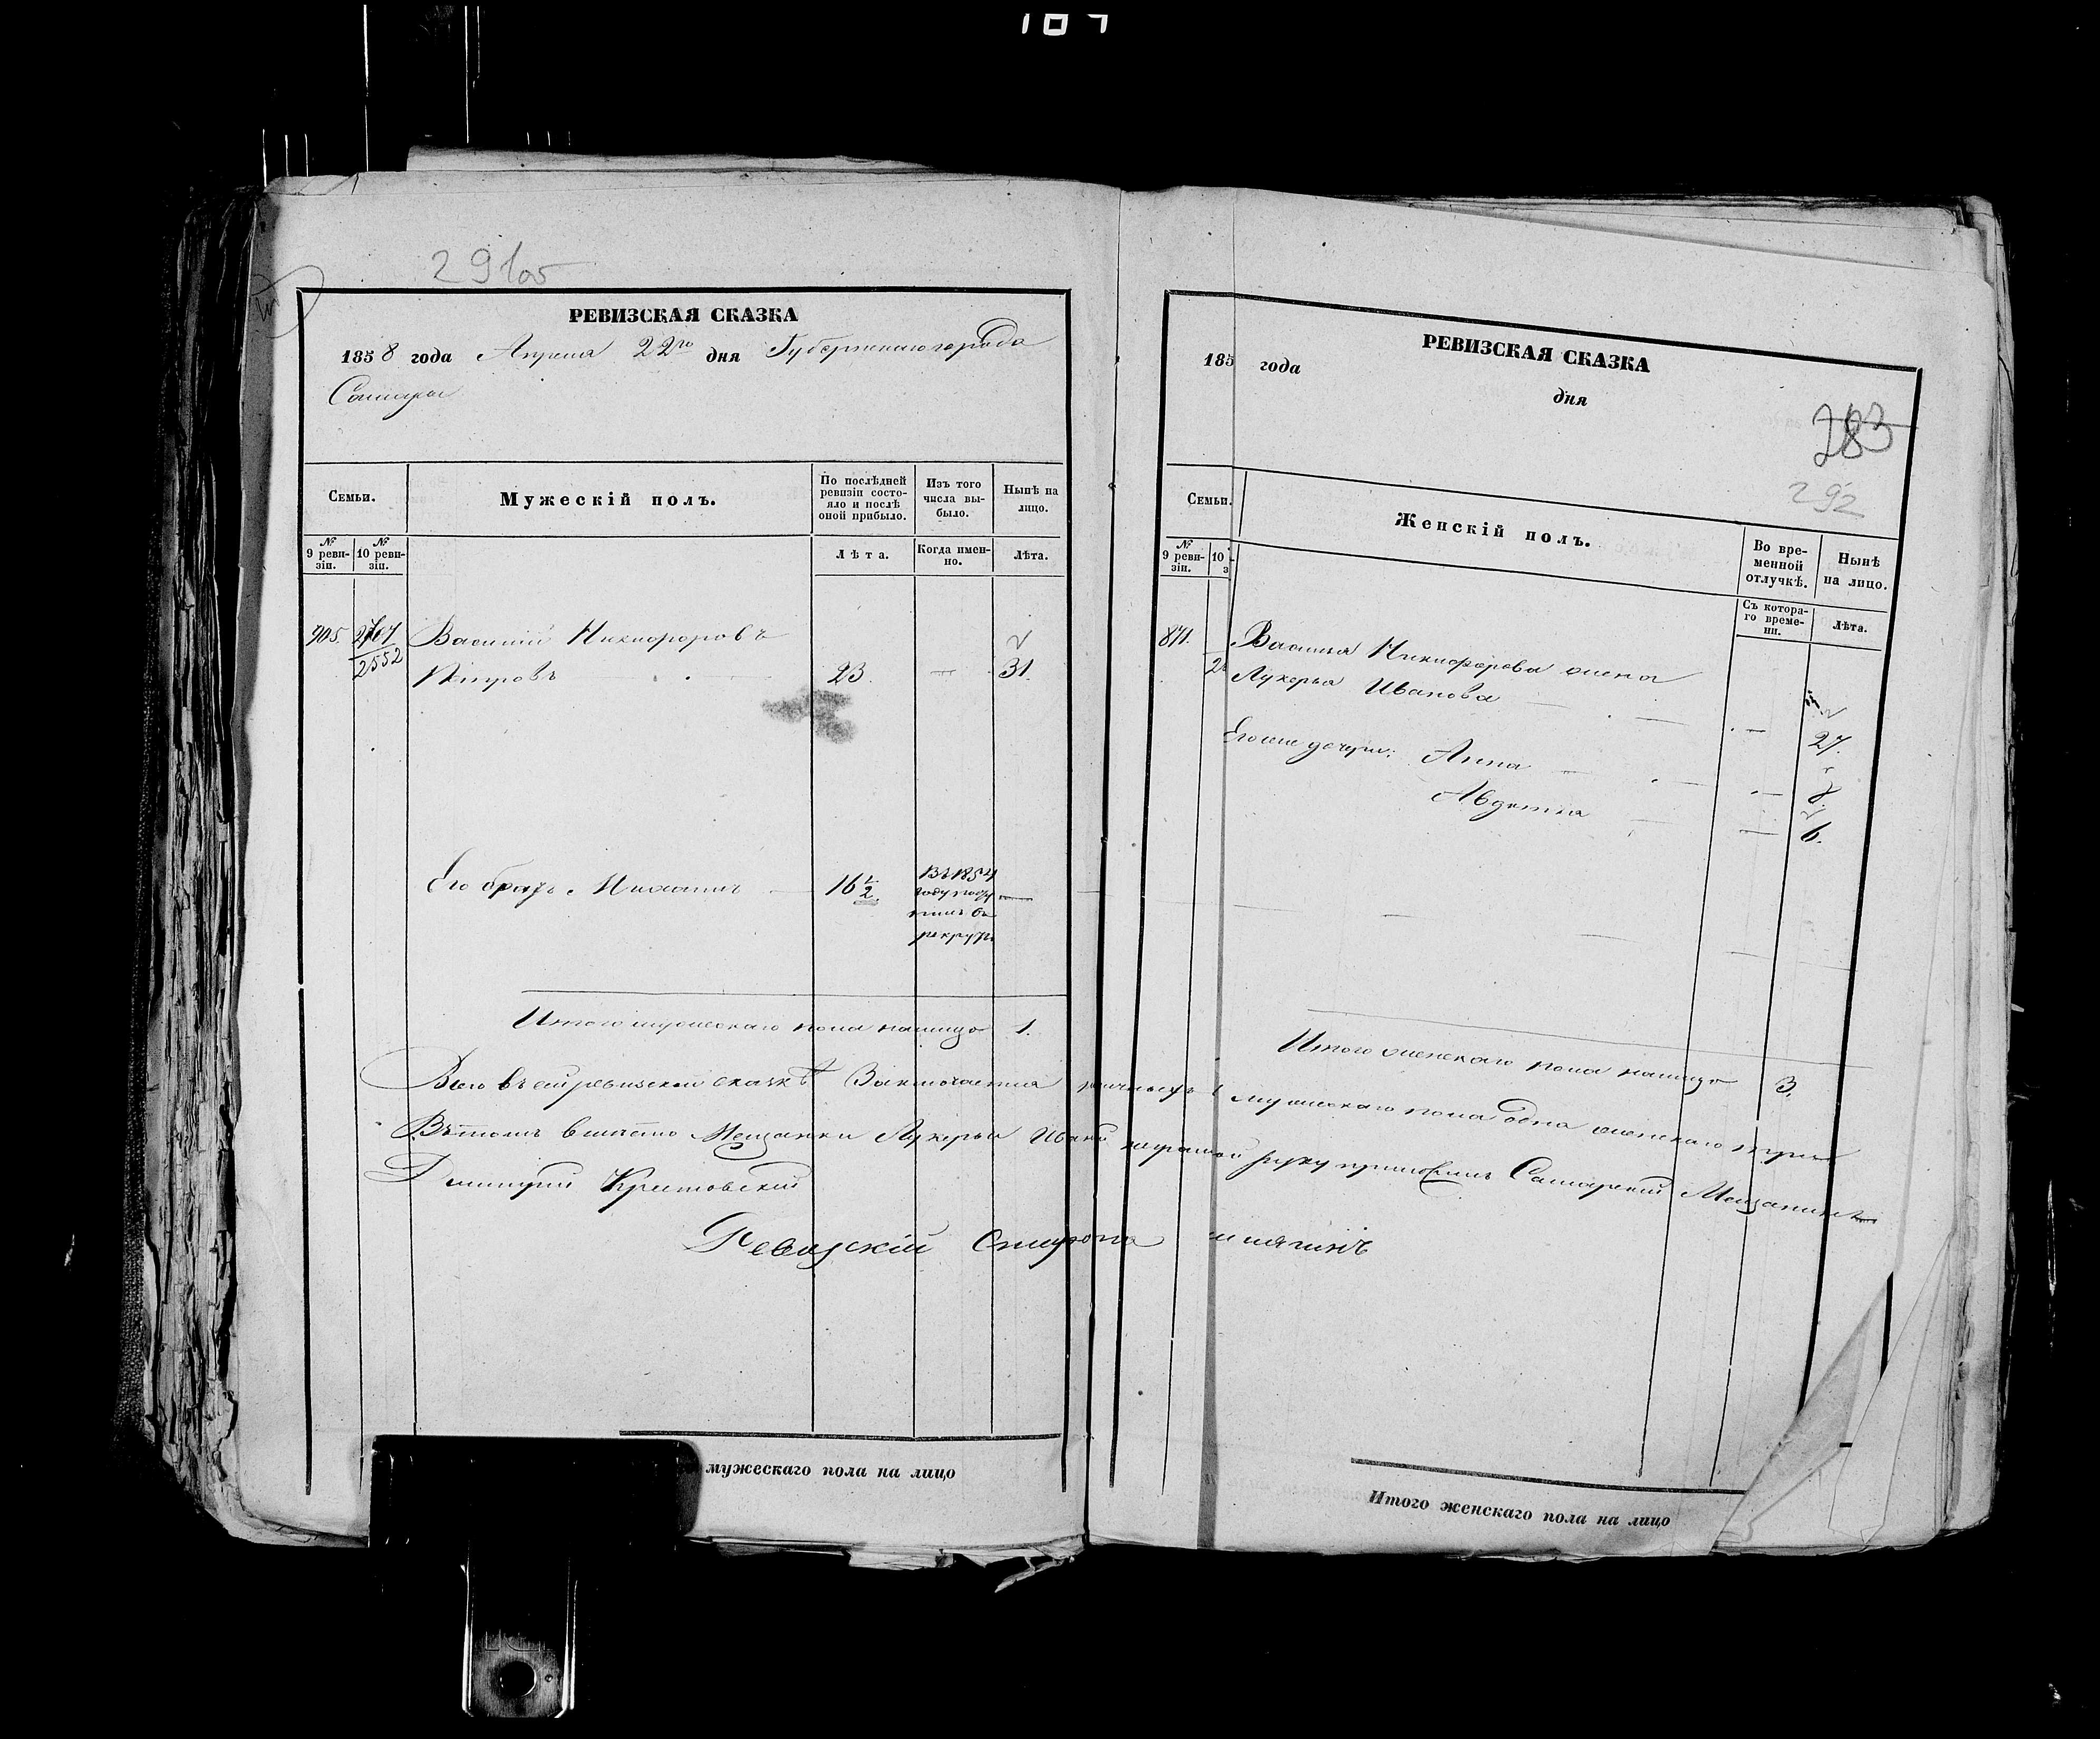 291об
РЕВИЗСКАЯ СКАЗКА
1858 года Апреля 22го дня Губернскаго города
Самары
Семьи.
Мужескій полъ.
По послѣдней ревизіи состояло и послѣ оной прибыло.
Изъ того числа выбыло.
Нынѣ на лицо.
№ 9 ревизіи.
№ 10 ревизіи.
Лѣта.
Когда именно.
Лѣта.
905. 2552 Василий Никифоровъ
Петровъ 23. — 31.
Его братъ Михаилъ — 16½ Въ 1854
году поступилъ въ
рекруты
Итого мужескаго пола налицо 1.
мужескаго пола на лицо
РЕВИЗСКАЯ СКАЗКА
185 года
дня
283
292
Семьи.
Женскій полъ.
Во временной отлучкѣ.
Нынѣ на лицо.
№ 9 ревизіи.
10
Съ котораго времени.
Лѣта.
871. Василья Никифорова жена
Лукерья Иванова — 27.
Его же дочери: Анна — 8.
Авдотья — 6.
Итого женскаго пола налицо 3.
Всего въ сей ревизской сказкѣ Заключается мужескаго пола одна женскаго три
Въ томъ вместо Мещанки Лукерьи руку приложилъ Самарский Мещанинъ
Дмитрий
Ревизскій
Итого женскаго пола на лицо